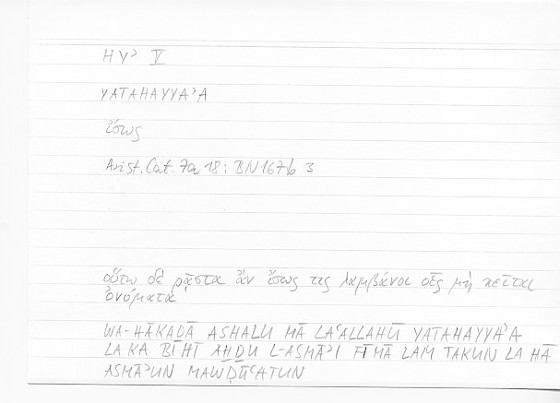 HYʾ V
YATAHAYYAʾA
ἴσως
Arist. Cat. 7a 18; BN 167b 3
οὕτω δὲ ῥᾷστα ἂν ἴσως τις λαμβάνοι οἷς μὴ κεῖται
ὀνόματα
WA-HĀKAḎĀ ASHALU MĀ LAʿALLAHŪ YATAHAYYAʾA
LA KA BIHĪ AḪḎU L-ASMĀʾI FĪMĀ LAM TAKUN LA HĀ
ASMĀʾUN MAWḌŪʿATUN